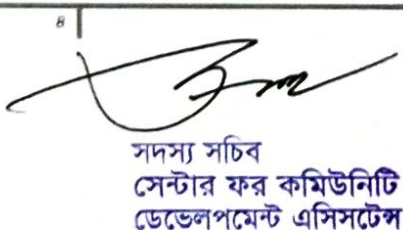 ৪
সদস্য সচিব
সেন্টার ফর কমিউনিটি
ডেভেলপমেন্ট এসিসটেন্স